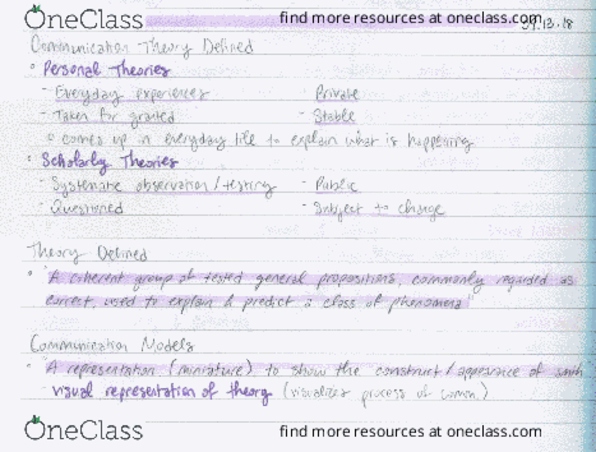 OneClass find more resources at oneclass.com
Communication Theory Defined
• Personal Theories
- Everyday experiences - Private
- Taken for granted - Stable
o comes up in everyday life to explain what is happening
• Scholarly Theories
- Systematic observation/testing - Public
- Questioned - Subject to change
Theory Defined
• "A coherent group of tested general propositions, commonly regarded as
correct, used to explain & predict a class of phenomena"
Communication Models
• "A representation (miniature) to show the construct/appearance of smth"
- visual representation of theory (visualizes process of comm.)
OneClass find more resources at oneclass.com